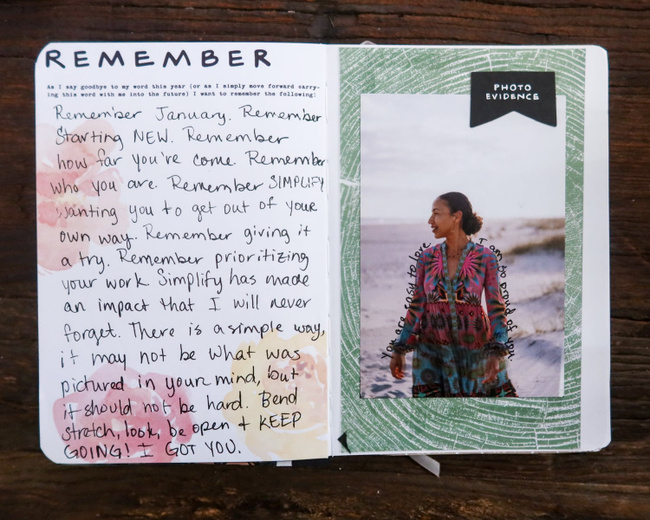 REMEMBER
As I say goodbye to my word this year (or as I simply move forward carry-
ing this word with me into the future) I want to remember the following:
Remember January. Remember
Starting NEW. Remember
how far you're come. Remember
who you are. Remember SIMPLIFY
wanting you to get out of your
own way. Remember giving it
a try. Remember prioritizing
your work Simplify has made
an impact that I will never
forget. There is a simple way,
it may not be what was
pictured in your mind, but
it should not be hard. Bend
stretch, look, be open + KEEP
GOING! I GOT YOU.
PHOTO
EVIDENCE
You are easy to love
I am so proud of you